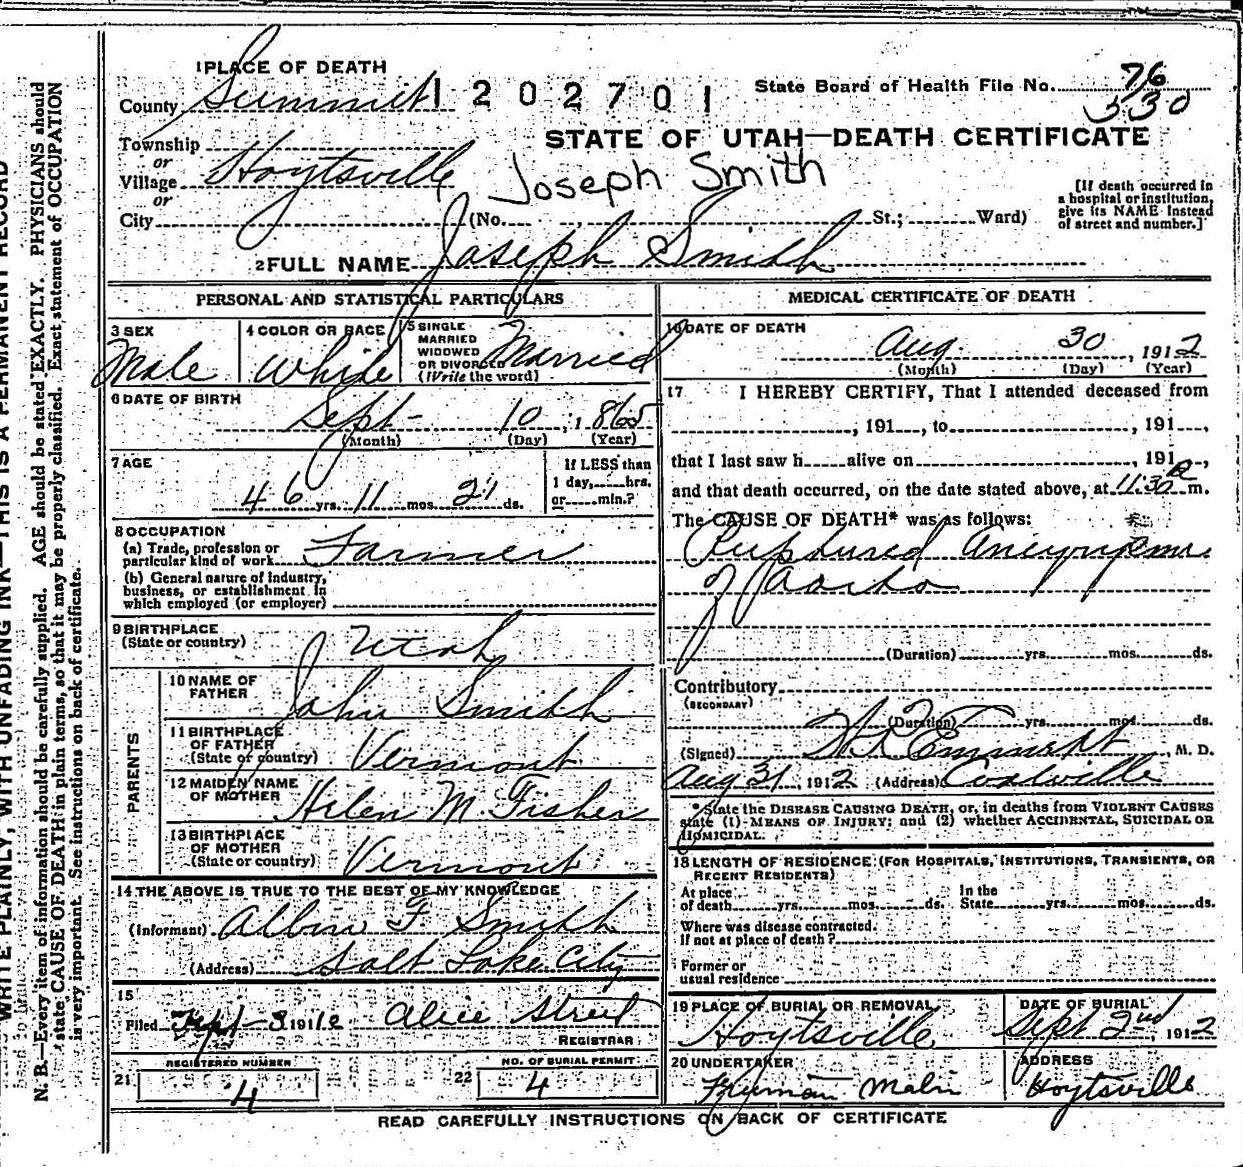 1 PLACE OF DEATH
County Summit
1202701
State Board of Health File No. 76
530
STATE OF UTAH—DEATH CERTIFICATE
Township
or
Village Hoytsville
or
City
Joseph Smith
(No. , St.; Ward)
[If death occurred in
a hospital or institution,
give its NAME instead
of street and number.]
2 FULL NAME Joseph Smith
PERSONAL AND STATISTICAL PARTICULARS
3 SEX
Male
4 COLOR OR RACE
White
5 SINGLE
MARRIED
WIDOWED
OR DIVORCED
(Write the word)
Married
6 DATE OF BIRTH
Sept 10, 1865
(Month) (Day) (Year)
7 AGE
46 yrs. 11 mos. 21 ds.
If LESS than
1 day, hrs.
or min.?
8 OCCUPATION
(a) Trade, profession or
particular kind of work Farmer
(b) General nature of Industry,
business, or establishment in
which employed (or employer)
9 BIRTHPLACE
(State or country) Utah
PARENTS
10 NAME OF
FATHER John Smith
11 BIRTHPLACE
OF FATHER
(State or country) Vermont
12 MAIDEN NAME
OF MOTHER Helen M. Fisher
13 BIRTHPLACE
OF MOTHER
(State or country) Vermont
14 THE ABOVE IS TRUE TO THE BEST OF MY KNOWLEDGE
(Informant) Albin F. Smith
(Address) Salt Lake City
15
Filed Sept 3 1912 Alice Street
REGISTRAR
REGISTERED NUMBER
21 4
NO. OF BURIAL PERMIT
22 4
MEDICAL CERTIFICATE OF DEATH
16 DATE OF DEATH
Aug 30, 1912
(Month) (Day) (Year)
17 I HEREBY CERTIFY, That I attended deceased from
, 191 , to , 191 ,
that I last saw h alive on , 191 ,
and that death occurred, on the date stated above, at 11:30 m.
The CAUSE OF DEATH* was as follows:
Ruptured Aneurysm
of Aorta
(Duration) yrs. mos. ds.
Contributory
(SECONDARY)
(Duration) yrs. mos. ds.
(Signed) , M. D.
Aug 31, 1912 (Address) Coalville
*State the DISEASE CAUSING DEATH, or, in deaths from VIOLENT CAUSES
state (1) MEANS OF INJURY; and (2) whether ACCIDENTAL, SUICIDAL OR
HOMICIDAL.
18 LENGTH OF RESIDENCE (FOR HOSPITALS, INSTITUTIONS, TRANSIENTS, OR
RECENT RESIDENTS)
At place
of death yrs. mos. ds.
In the
State yrs. mos. ds.
Where was disease contracted.
If not at place of death?
Former or
usual residence
19 PLACE OF BURIAL OR REMOVAL
Hoytsville
DATE OF BURIAL
Sept 2nd, 1912
20 UNDERTAKER
Malin
ADDRESS
Hoytsville
READ CAREFULLY INSTRUCTIONS ON BACK OF CERTIFICATE
WRITE PLAINLY, WITH UNFADING INK—THIS IS A PERMANENT RECORD
N. B.—Every item of information should be carefully supplied. AGE should be stated EXACTLY. PHYSICIANS should
state CAUSE OF DEATH in plain terms, so that it may be properly classified. Exact statement of OCCUPATION
is very important. See instructions on back of certificate.